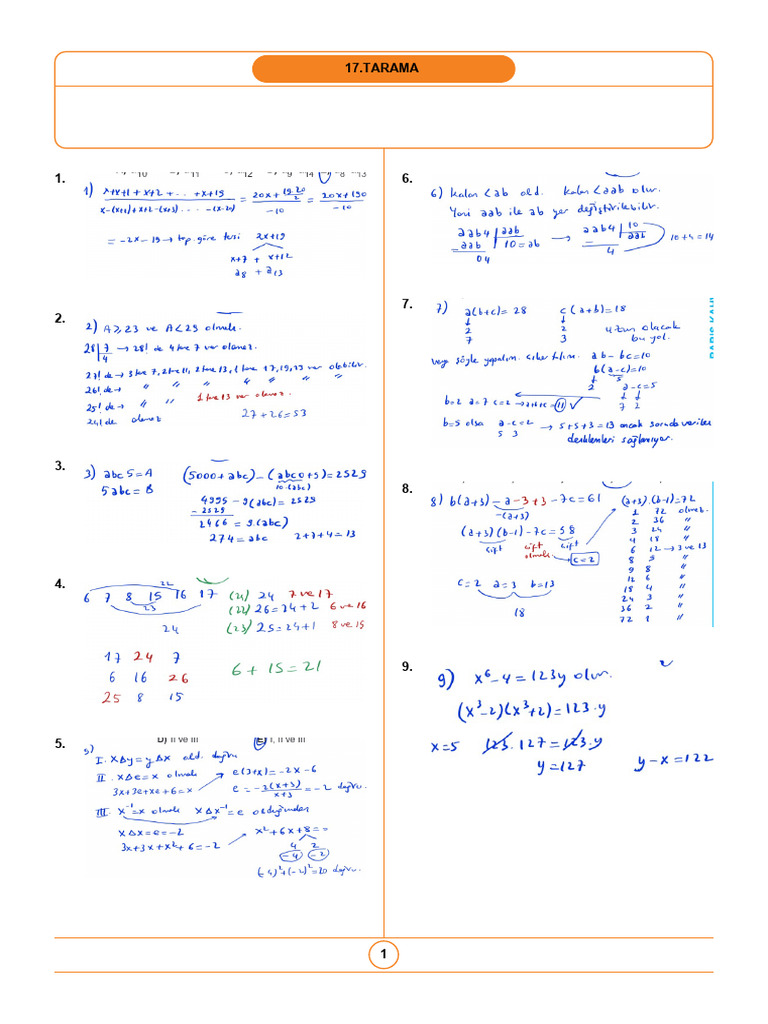 17.TARAMA
1.
1) x+x+1+x+2+...+x+19 / x-(x+1)+x+2-(x+3)... -(x-20) = 20x+ 19.20/2 / -10 = 20x+190 / -10
= -2x-19 → top. göre tersi 2x+19
x+7 + x+12
a8 + a13
2.
2) A≥23 ve A<29 olmalı.
28|7 /4 → 28! de 4 tane 7 var olamaz.
27! de → 3 tane 7, 2 tane 11, 2 tane 13, 1 tane 17, 19, 23 var olabilir.
26! de → " " " " " "
25! de → " " 1 tane 13 var olamaz.
24! de olamaz
27+26=53
3.
3) abc5=A (5000+abc)-(abc0+5)=2529
10.(abc)
5abc=B 4995-9(abc)=2529
-2529
2466=9.(abc)
274=abc 2+7+4=13
4.
22
6 7 8 15 16 17
23
24
(21) 24 7 ve 17
(22) 26=24+2 6 ve 16
(23) 25=24+1 8 ve 15
17 24 7
6 16 26
25 8 15
6+15=21
5.
D) II ve III E) I, II ve III
5)
I. x∆y=y∆x old. doğru
II. x∆e=x olmalı
3x+3e+xe+6=x
e(3+x)=-2x-6
e= -2(x+3) / x+3 = -2 doğru.
III. x⁻¹=x olmalı x∆x⁻¹=e olduğundan
x∆x=e=-2
3x+3x+x²+6=-2
x²+6x+8=0
4 2
-4 -2
(-4)²+(-2)²=20 doğru.
6.
6) Kalan<ab old. Kalan<aab olur.
Yani aab ile ab yer değiştirilebilir.
aab4 | aab
-aab 10=ab
04
→ aab4 | 10
- aab
4
10+4=14
7.
7) a(b+c)=28 c(a+b)=18
2 2
7 3
uzun olacak
bu yol.
veya şöyle yapalım. Çıkartalım. ab-bc=10
b(a-c)=10
2 5
a-c=5
7 2
b=2 a=7 c=2 → a+b+c=11 ✓
b=5 olsa a-c=2 → 5+5+3=13 ancak soruda verilen
5 3 denklemleri sağlamıyor.
8.
8) b(a+3)-a-3+3-7c=61
-(a+3)
(a+3)(b-1)-7c=58
çift çift olmalı çift
c=2
c=2 a=3 b=13
18
(a+3).(b-1)=72
1 72 olmaz.
2 36 "
3 24 "
4 18 "
6 12 → 3 ve 13
8 9 "
9 8 "
12 6 "
18 4 "
24 3 "
36 2 "
72 1 "
9.
9) x⁶-4=123y olur.
(x³-2)(x³+2)=123.y
x=5 123.127=123.y
y=127 y-x=122
1